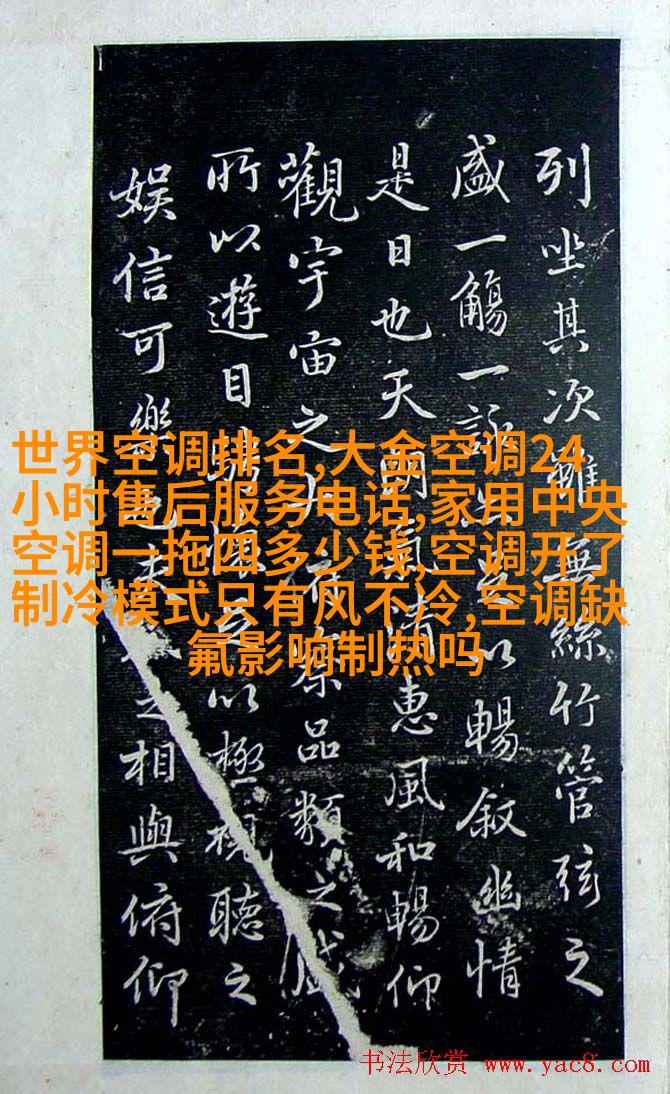 列坐其次雖無絲竹管弦之
盛一觴一詠亦足以暢叙幽情
是日也天朗氣清惠風和暢仰
觀宇宙之大俯察品類之盛
所以遊目騁懷足以極視聽之
娛信可樂也夫人之相與俯仰
世界空调排名,大金空调24
小时售后服务电话,家用中央
空调一拖四多少钱,空调开了
制冷模式只有风不冷,空调缺
氟影响制热吗
书法欣赏 www.yac8.com